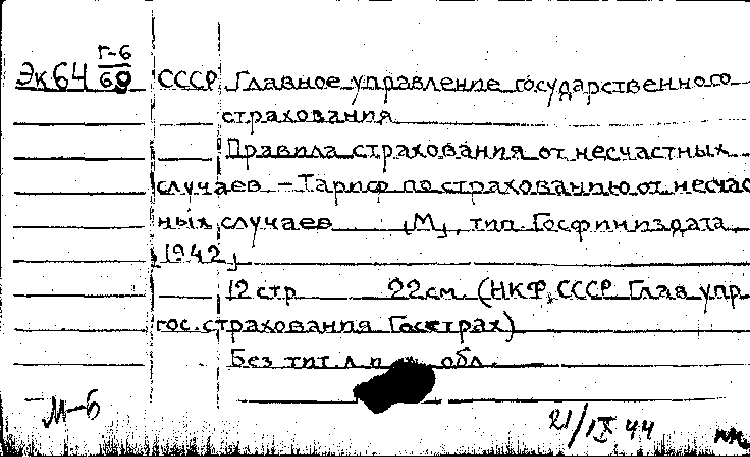 Г-6
Эк64 60 СССР Главное управление государственного
страхования
Правила страхования от несчастных
случаев – Тариф по страхованию от несчас
ных случаев [М], тип. Госфиниздата,
[1942]
12 стр 22 см. (НКФ СССР Глав упр
гос. страхования Госстрах)
Без тит. л. и обл.
М–Б
21/IX 44